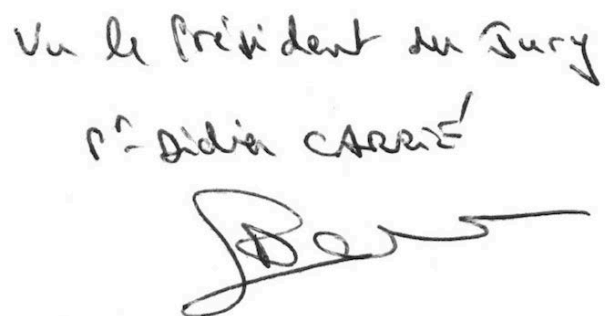 Vu le Président du Jury
Pr Didier CARRIÉ